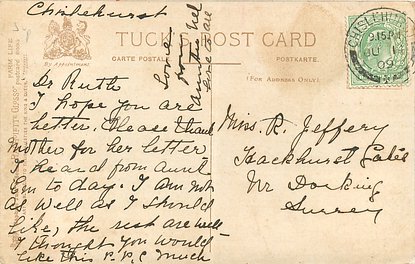 Chislehurst
TUCK'S POST CARD
By Appointment
CARTE POSTALE
POSTKARTE
(FOR ADDRESS ONLY)
CHISLEHURST
9.15 PM
09
Dr Ruth
I hope you are
better. Please thank
Mother for her letter
I heard from aunt
Em to day. I am not
as well as I should
like, the rest are well
I thought you would
like this P.P.C much
love
from
love to all
Miss. R. Jeffery
Hackhurst
Nr Dorking
Surrey